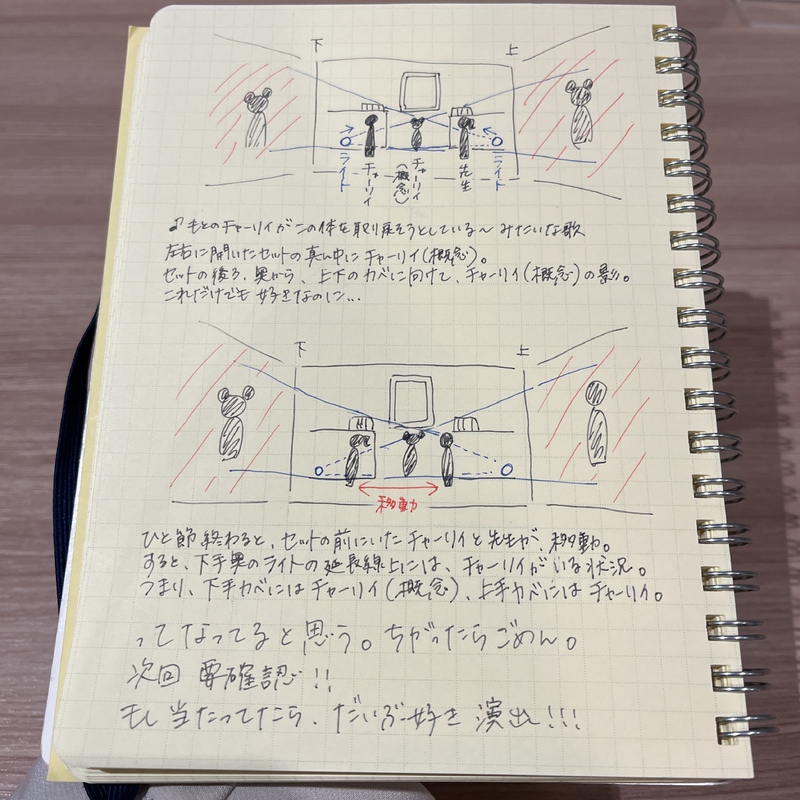 下 上
ライト チャーリイ チャーリイ(概念) 先生 ライト
♪もとのチャーリイがこの体を取り戻そうとしている〜 みたいな歌
左右に開いたセットの真ん中にチャーリイ(概念)。
セットの後ろ、奥から、上下のカベに向けて、チャーリイ(概念)の影。
これだけでも好きなのに…
下 上
移動
ひと節終わると、セットの前にいたチャーリイと先生が、移動。
すると、下手奥のライトの延長線上には、チャーリイがいる状況。
つまり、下手カベにはチャーリイ(概念)、上手カベにはチャーリイ。
ってなってると思う。ちがったらごめん。
次回 要確認!!
もし当たってたら、だいぶ好き 演出!!!